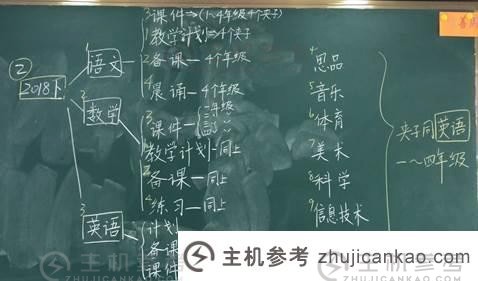 ②
2018下
1 语文
3 课件⇒(1~4年级4个夹子)
1 教学计划⇒4个夹子
2 备课—4个年级
4 晨诵—4个年级
2 数学
3 课件—
一年级
二〃
三〃
教学计划—同上
备课—同上
4 练习—同上
3 英语
计划
备课
课件
4 思品
5 音乐
6 体育
7 美术
8 科学
9 信息技术
夹子同英语
一~四年级
主机参考 zhujicankao.com
主机参考
zhujicankao.com